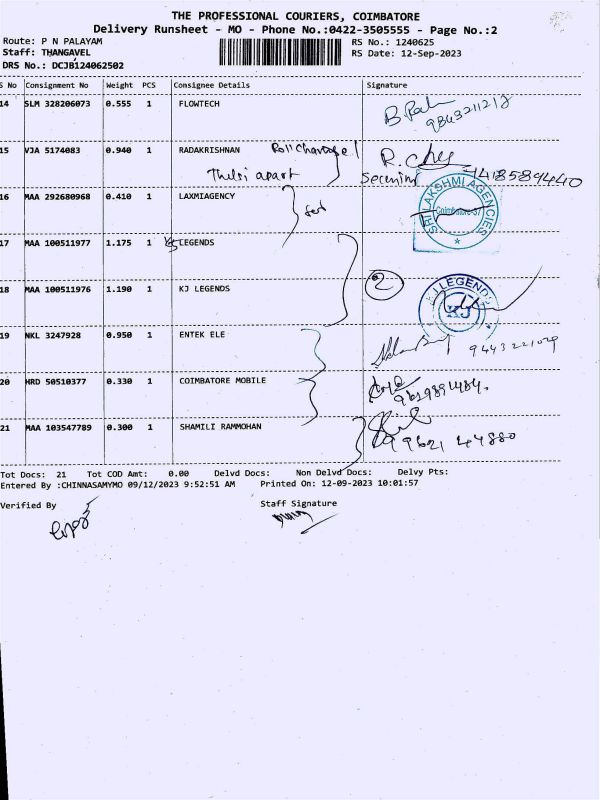 THE PROFESSIONAL COURIERS, COIMBATORE
Delivery Runsheet - MO - Phone No.:0422-3505555 - Page No.:2
Route: P N PALAYAM RS No.: 1240625
Staff: THANGAVEL RS Date: 12-Sep-2023
DRS No.: DCJB124062502
S No Consignment No Weight PCS Consignee Details Signature
14 SLM 328206073 0.555 1 FLOWTECH
9843211212
15 VJA 5174083 0.940 1 RADAKRISHNAN
Thulsi apart 7418589440
16 MAA 292680968 0.410 1 LAXMIAGENCY
SRI LAKSHMI AGENCIES
Coimbatore-37
17 MAA 100511977 1.175 1 LEGENDS
18 MAA 100511976 1.190 1 KJ LEGENDS 2
KJ LEGENDS
KJ
19 NKL 3247928 0.950 1 ENTEK ELE
20 HRD 50510377 0.330 1 COIMBATORE MOBILE
9629891484.
21 MAA 103547789 0.300 1 SHAMILI RAMMOHAN
99621 44880
Tot Docs: 21 Tot COD Amt: 0.00 Delvd Docs: Non Delvd Docs: Delvy Pts:
Entered By :CHINNASAMYMO 09/12/2023 9:52:51 AM Printed On: 12-09-2023 10:01:57
Verified By Staff Signature